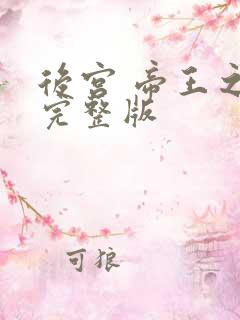 後宫 帝王之
完整版
可狼